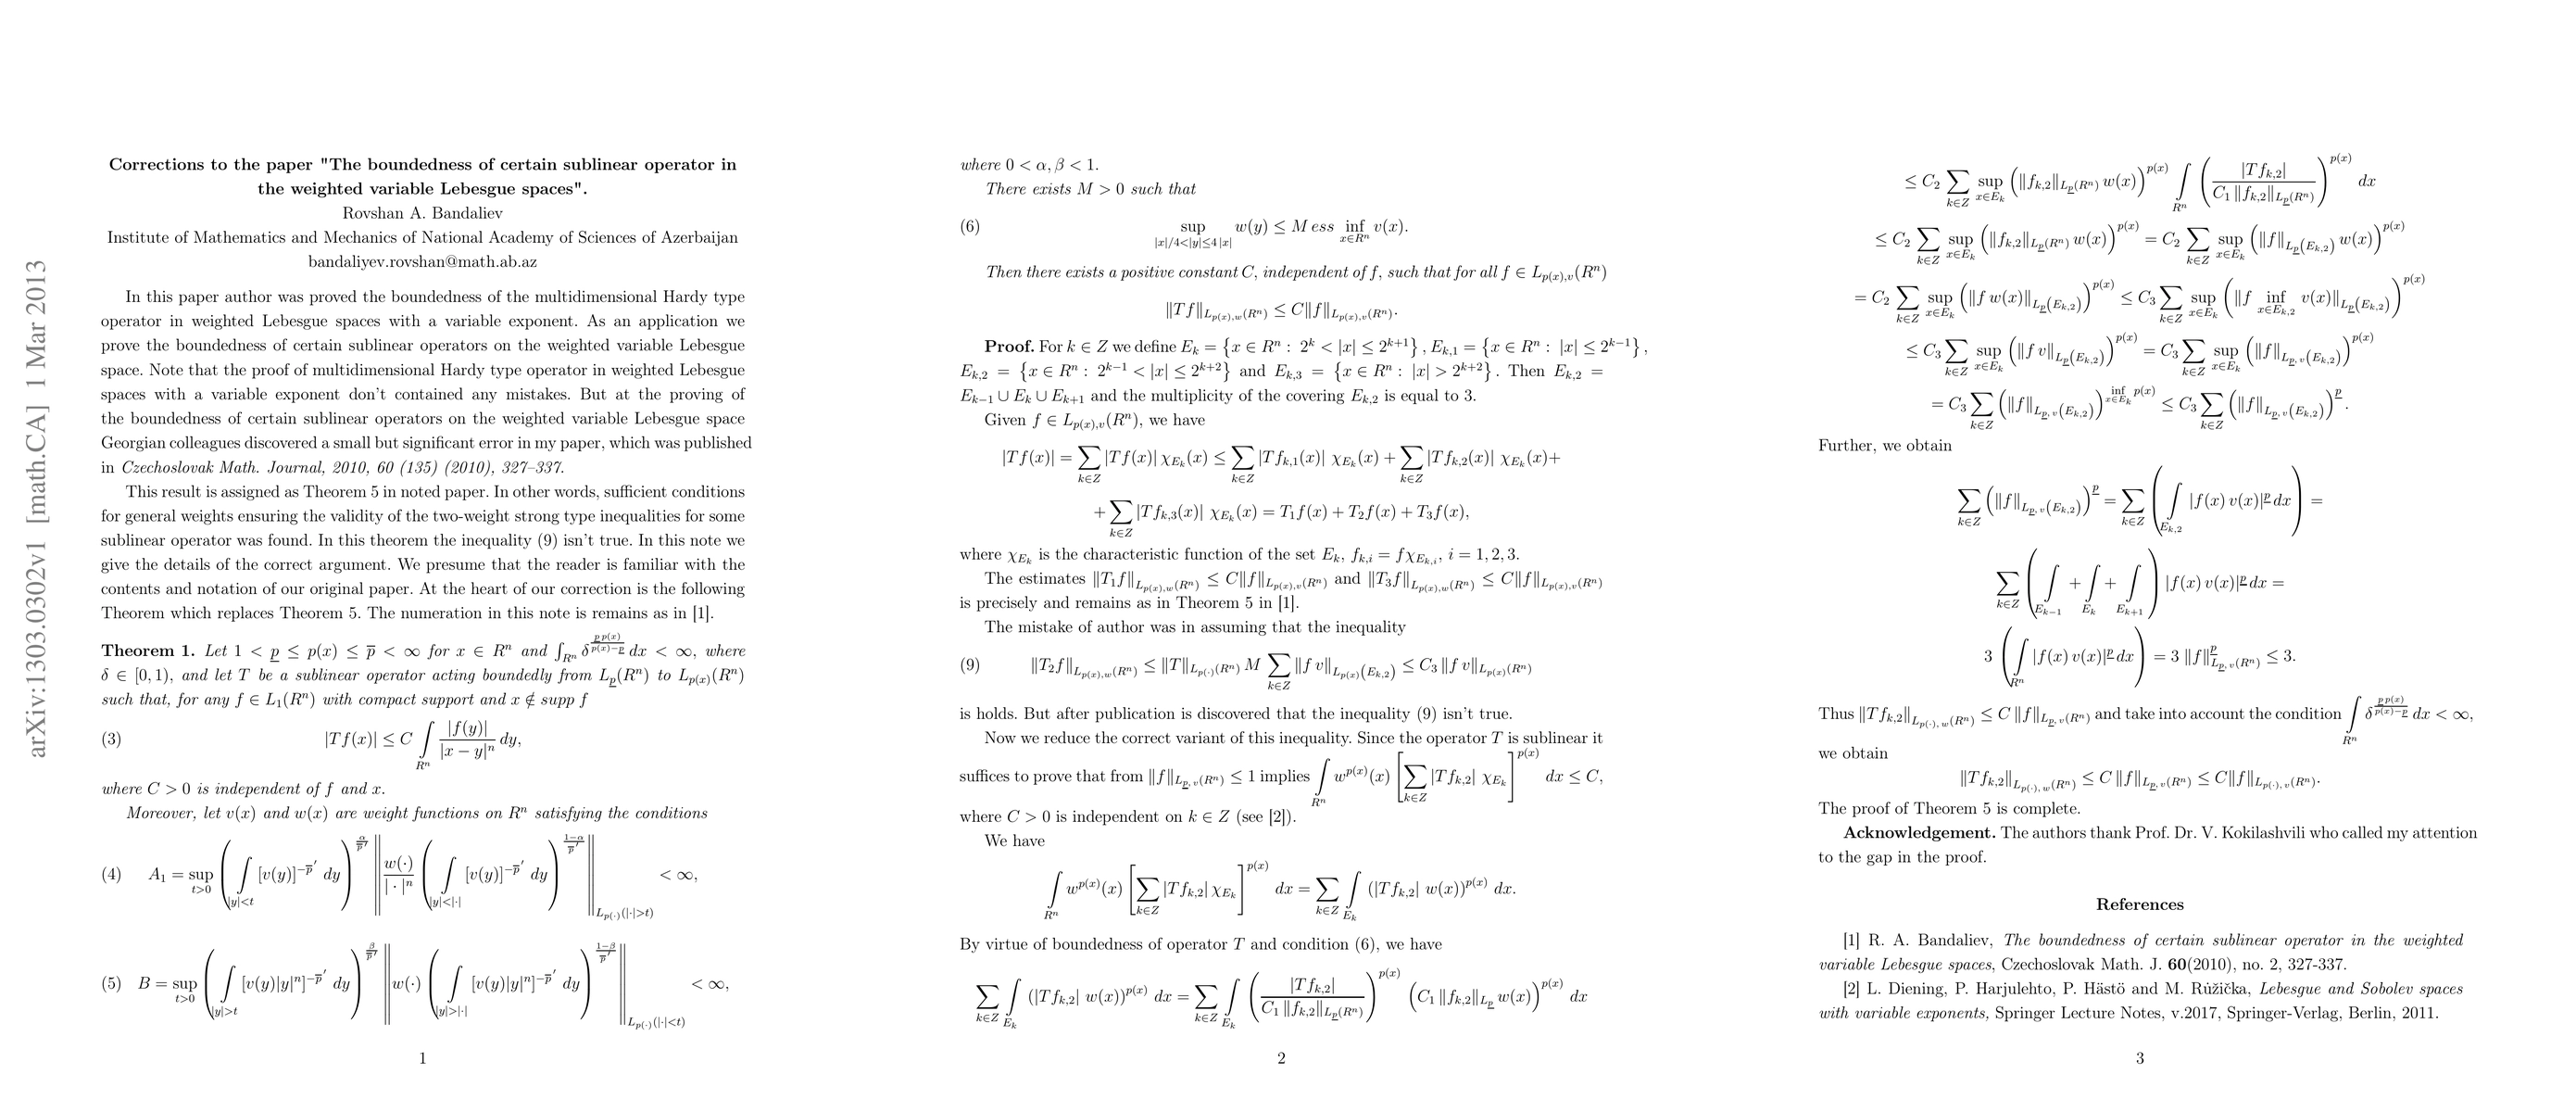 arXiv:1303.0302v1 [math.CA] 1 Mar 2013
Corrections to the paper "The boundedness of certain sublinear operator in
the weighted variable Lebesgue spaces".
Rovshan A. Bandaliev
Institute of Mathematics and Mechanics of National Academy of Sciences of Azerbaijan
bandaliyev.rovshan@math.ab.az
In this paper author was proved the boundedness of the multidimensional Hardy type
operator in weighted Lebesgue spaces with a variable exponent. As an application we
prove the boundedness of certain sublinear operators on the weighted variable Lebesgue
space. Note that the proof of multidimensional Hardy type operator in weighted Lebesgue
spaces with a variable exponent don't contained any mistakes. But at the proving of
the boundedness of certain sublinear operators on the weighted variable Lebesgue space
Georgian colleagues discovered a small but significant error in my paper, which was published
in Czechoslovak Math. Journal, 2010, 60 (135) (2010), 327–337.
This result is assigned as Theorem 5 in noted paper. In other words, sufficient conditions
for general weights ensuring the validity of the two-weight strong type inequalities for some
sublinear operator was found. In this theorem the inequality (9) isn't true. In this note we
give the details of the correct argument. We presume that the reader is familiar with the
contents and notation of our original paper. At the heart of our correction is the following
Theorem which replaces Theorem 5. The numeration in this note is remains as in [1].
Theorem 1. Let $1 < \underline{p} \le p(x) \le \overline{p} < \infty$ for $x \in R^n$ and $\int_{R^n} \delta^{\frac{\underline{p}\,p(x)}{p(x)-\underline{p}}} dx < \infty$, where
$\delta \in [0, 1)$, and let $T$ be a sublinear operator acting boundedly from $L_{\underline{p}}(R^n)$ to $L_{p(x)}(R^n)$
such that, for any $f \in L_1(R^n)$ with compact support and $x \notin supp\, f$
(3) $|Tf(x)| \le C \int\limits_{R^n} \frac{|f(y)|}{|x-y|^n} \, dy,$
where $C > 0$ is independent of $f$ and $x$.
Moreover, let $v(x)$ and $w(x)$ are weight functions on $R^n$ satisfying the conditions
(4) $A_1 = \sup\limits_{t>0} \left( \int\limits_{|y|<t} [v(y)]^{-\overline{p}'} \, dy \right)^{\frac{\alpha}{\overline{p}'}} \left\| \frac{w(\cdot)}{|\cdot|^n} \left( \int\limits_{|y|<|\cdot|} [v(y)]^{-\overline{p}'} \, dy \right)^{\frac{1-\alpha}{\overline{p}'}} \right\|_{L_{p(\cdot)}(|\cdot|>t)} < \infty,$
(5) $B = \sup\limits_{t>0} \left( \int\limits_{|y|>t} [v(y)|y|^n]^{-\overline{p}'} \, dy \right)^{\frac{\beta}{\overline{p}'}} \left\| w(\cdot) \left( \int\limits_{|y|>|\cdot|} [v(y)|y|^n]^{-\overline{p}'} \, dy \right)^{\frac{1-\beta}{\overline{p}'}} \right\|_{L_{p(\cdot)}(|\cdot|<t)} < \infty,$
1
where $0 < \alpha, \beta < 1$.
There exists $M > 0$ such that
(6) $\sup\limits_{|x|/4<|y|\le 4|x|} w(y) \le M \, ess \inf\limits_{x \in R^n} v(x).$
Then there exists a positive constant $C$, independent of $f$, such that for all $f \in L_{p(x),v}(R^n)$
$\|Tf\|_{L_{p(x),w}(R^n)} \le C \|f\|_{L_{p(x),v}(R^n)}.$
Proof. For $k \in Z$ we define $E_k = \{x \in R^n : 2^k < |x| \le 2^{k+1}\}$, $E_{k,1} = \{x \in R^n : |x| \le 2^{k-1}\}$,
$E_{k,2} = \{x \in R^n : 2^{k-1} < |x| \le 2^{k+2}\}$ and $E_{k,3} = \{x \in R^n : |x| > 2^{k+2}\}$. Then $E_{k,2} =$
$E_{k-1} \cup E_k \cup E_{k+1}$ and the multiplicity of the covering $E_{k,2}$ is equal to 3.
Given $f \in L_{p(x),v}(R^n)$, we have
$|Tf(x)| = \sum\limits_{k \in Z} |Tf(x)| \, \chi_{E_k}(x) \le \sum\limits_{k \in Z} |Tf_{k,1}(x)| \, \chi_{E_k}(x) + \sum\limits_{k \in Z} |Tf_{k,2}(x)| \, \chi_{E_k}(x) +$
$+ \sum\limits_{k \in Z} |Tf_{k,3}(x)| \, \chi_{E_k}(x) = T_1 f(x) + T_2 f(x) + T_3 f(x),$
where $\chi_{E_k}$ is the characteristic function of the set $E_k$, $f_{k,i} = f\chi_{E_{k,i}}$, $i = 1, 2, 3$.
The estimates $\|T_1 f\|_{L_{p(x),w}(R^n)} \le C\|f\|_{L_{p(x),v}(R^n)}$ and $\|T_3 f\|_{L_{p(x),w}(R^n)} \le C\|f\|_{L_{p(x),v}(R^n)}$
is precisely and remains as in Theorem 5 in [1].
The mistake of author was in assuming that the inequality
(9) $\|T_2 f\|_{L_{p(x),w}(R^n)} \le \|T\|_{L_{p(\cdot)}(R^n)} M \sum\limits_{k \in Z} \|f\,v\|_{L_{p(x)}(E_{k,2})} \le C_3 \|f\,v\|_{L_{p(x)}(R^n)}$
is holds. But after publication is discovered that the inequality (9) isn't true.
Now we reduce the correct variant of this inequality. Since the operator $T$ is sublinear it
suffices to prove that from $\|f\|_{L_{\underline{p},v}(R^n)} \le 1$ implies $\int\limits_{R^n} w^{p(x)}(x) \left[ \sum\limits_{k \in Z} |Tf_{k,2}| \, \chi_{E_k} \right]^{p(x)} dx \le C,$
where $C > 0$ is independent on $k \in Z$ (see [2]).
We have
$\int\limits_{R^n} w^{p(x)}(x) \left[ \sum\limits_{k \in Z} |Tf_{k,2}| \, \chi_{E_k} \right]^{p(x)} dx = \sum\limits_{k \in Z} \int\limits_{E_k} (|Tf_{k,2}| \, w(x))^{p(x)} \, dx.$
By virtue of boundedness of operator $T$ and condition (6), we have
$\sum\limits_{k \in Z} \int\limits_{E_k} (|Tf_{k,2}| \, w(x))^{p(x)} \, dx = \sum\limits_{k \in Z} \int\limits_{E_k} \left( \frac{|Tf_{k,2}|}{C_1 \|f_{k,2}\|_{L_{\underline{p}}(R^n)}} \right)^{p(x)} \left( C_1 \|f_{k,2}\|_{L_{\underline{p}}} w(x) \right)^{p(x)} dx$
2
$\le C_2 \sum\limits_{k \in Z} \sup\limits_{x \in E_k} \left( \|f_{k,2}\|_{L_{\underline{p}}(R^n)} w(x) \right)^{p(x)} \int\limits_{R^n} \left( \frac{|Tf_{k,2}|}{C_1 \|f_{k,2}\|_{L_{\underline{p}}(R^n)}} \right)^{p(x)} dx$
$\le C_2 \sum\limits_{k \in Z} \sup\limits_{x \in E_k} \left( \|f_{k,2}\|_{L_{\underline{p}}(R^n)} w(x) \right)^{p(x)} = C_2 \sum\limits_{k \in Z} \sup\limits_{x \in E_k} \left( \|f\|_{L_{\underline{p}}(E_{k,2})} w(x) \right)^{p(x)}$
$= C_2 \sum\limits_{k \in Z} \sup\limits_{x \in E_k} \left( \|f\,w(x)\|_{L_{\underline{p}}(E_{k,2})} \right)^{p(x)} \le C_3 \sum\limits_{k \in Z} \sup\limits_{x \in E_k} \left( \|f \inf\limits_{x \in E_{k,2}} v(x)\|_{L_{\underline{p}}(E_{k,2})} \right)^{p(x)}$
$\le C_3 \sum\limits_{k \in Z} \sup\limits_{x \in E_k} \left( \|f\,v\|_{L_{\underline{p}}(E_{k,2})} \right)^{p(x)} = C_3 \sum\limits_{k \in Z} \sup\limits_{x \in E_k} \left( \|f\|_{L_{\underline{p},v}(E_{k,2})} \right)^{p(x)}$
$= C_3 \sum\limits_{k \in Z} \left( \|f\|_{L_{\underline{p},v}(E_{k,2})} \right)^{\inf\limits_{x \in E_k} p(x)} \le C_3 \sum\limits_{k \in Z} \left( \|f\|_{L_{\underline{p},v}(E_{k,2})} \right)^{\underline{p}}.$
Further, we obtain
$\sum\limits_{k \in Z} \left( \|f\|_{L_{\underline{p},v}(E_{k,2})} \right)^{\underline{p}} = \sum\limits_{k \in Z} \left( \int\limits_{E_{k,2}} |f(x)\,v(x)|^{\underline{p}} dx \right) =$
$\sum\limits_{k \in Z} \left( \int\limits_{E_{k-1}} + \int\limits_{E_k} + \int\limits_{E_{k+1}} \right) |f(x)\,v(x)|^{\underline{p}} dx =$
$3 \left( \int\limits_{R^n} |f(x)\,v(x)|^{\underline{p}} dx \right) = 3 \, \|f\|^{\underline{p}}_{L_{\underline{p},v}(R^n)} \le 3.$
Thus $\|Tf_{k,2}\|_{L_{p(\cdot),w}(R^n)} \le C \|f\|_{L_{\underline{p},v}(R^n)}$ and take into account the condition $\int\limits_{R^n} \delta^{\frac{\underline{p}\,p(x)}{p(x)-\underline{p}}} dx < \infty,$
we obtain
$\|Tf_{k,2}\|_{L_{p(\cdot),w}(R^n)} \le C \|f\|_{L_{\underline{p},v}(R^n)} \le C\|f\|_{L_{p(\cdot),v}(R^n)}.$
The proof of Theorem 5 is complete.
Acknowledgement. The authors thank Prof. Dr. V. Kokilashvili who called my attention
to the gap in the proof.
References
[1] R. A. Bandaliev, The boundedness of certain sublinear operator in the weighted
variable Lebesgue spaces, Czechoslovak Math. J. 60(2010), no. 2, 327-337.
[2] L. Diening, P. Harjulehto, P. Hästö and M. Růžička, Lebesgue and Sobolev spaces
with variable exponents, Springer Lecture Notes, v.2017, Springer-Verlag, Berlin, 2011.
3